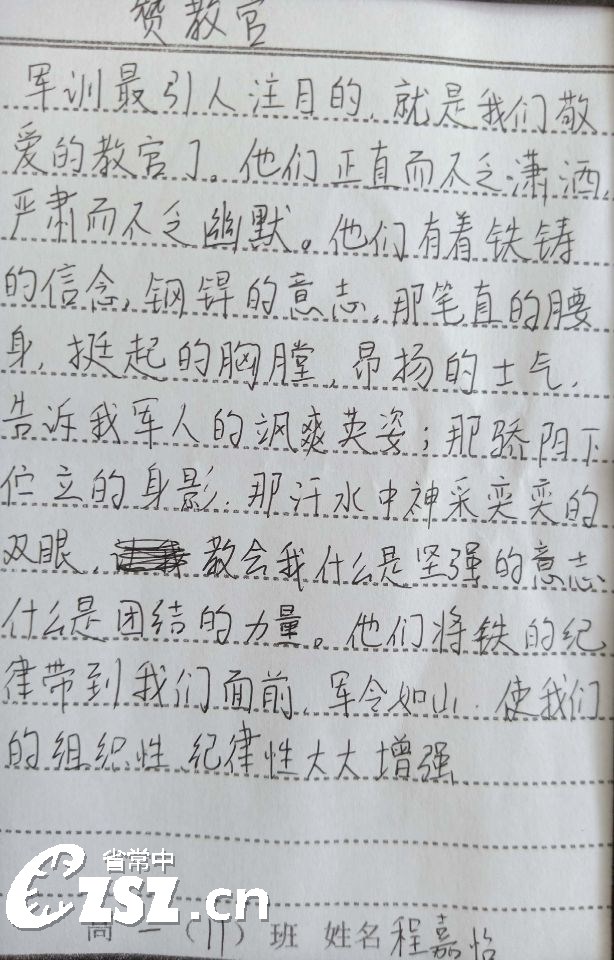 赞教官
军训最引人注目的,就是我们敬
爱的教官了。他们正直而不乏潇洒,
严肃而不乏幽默。他们有着铁铸
的信念,钢铎的意志,那笔直的腰
身,挺起的胸膛,昂扬的士气,
告诉我军人的飒爽英姿;那骄阳下
伫立的身影,那汗水中神采奕奕的
双眼,教会我什么是坚强的意志,
什么是团结的力量。他们将铁的纪
律带到我们面前,军令如山,使我们
的组织性、纪律性大大增强
省常中
CZSZ.cn
高一(11)班 姓名程嘉怡